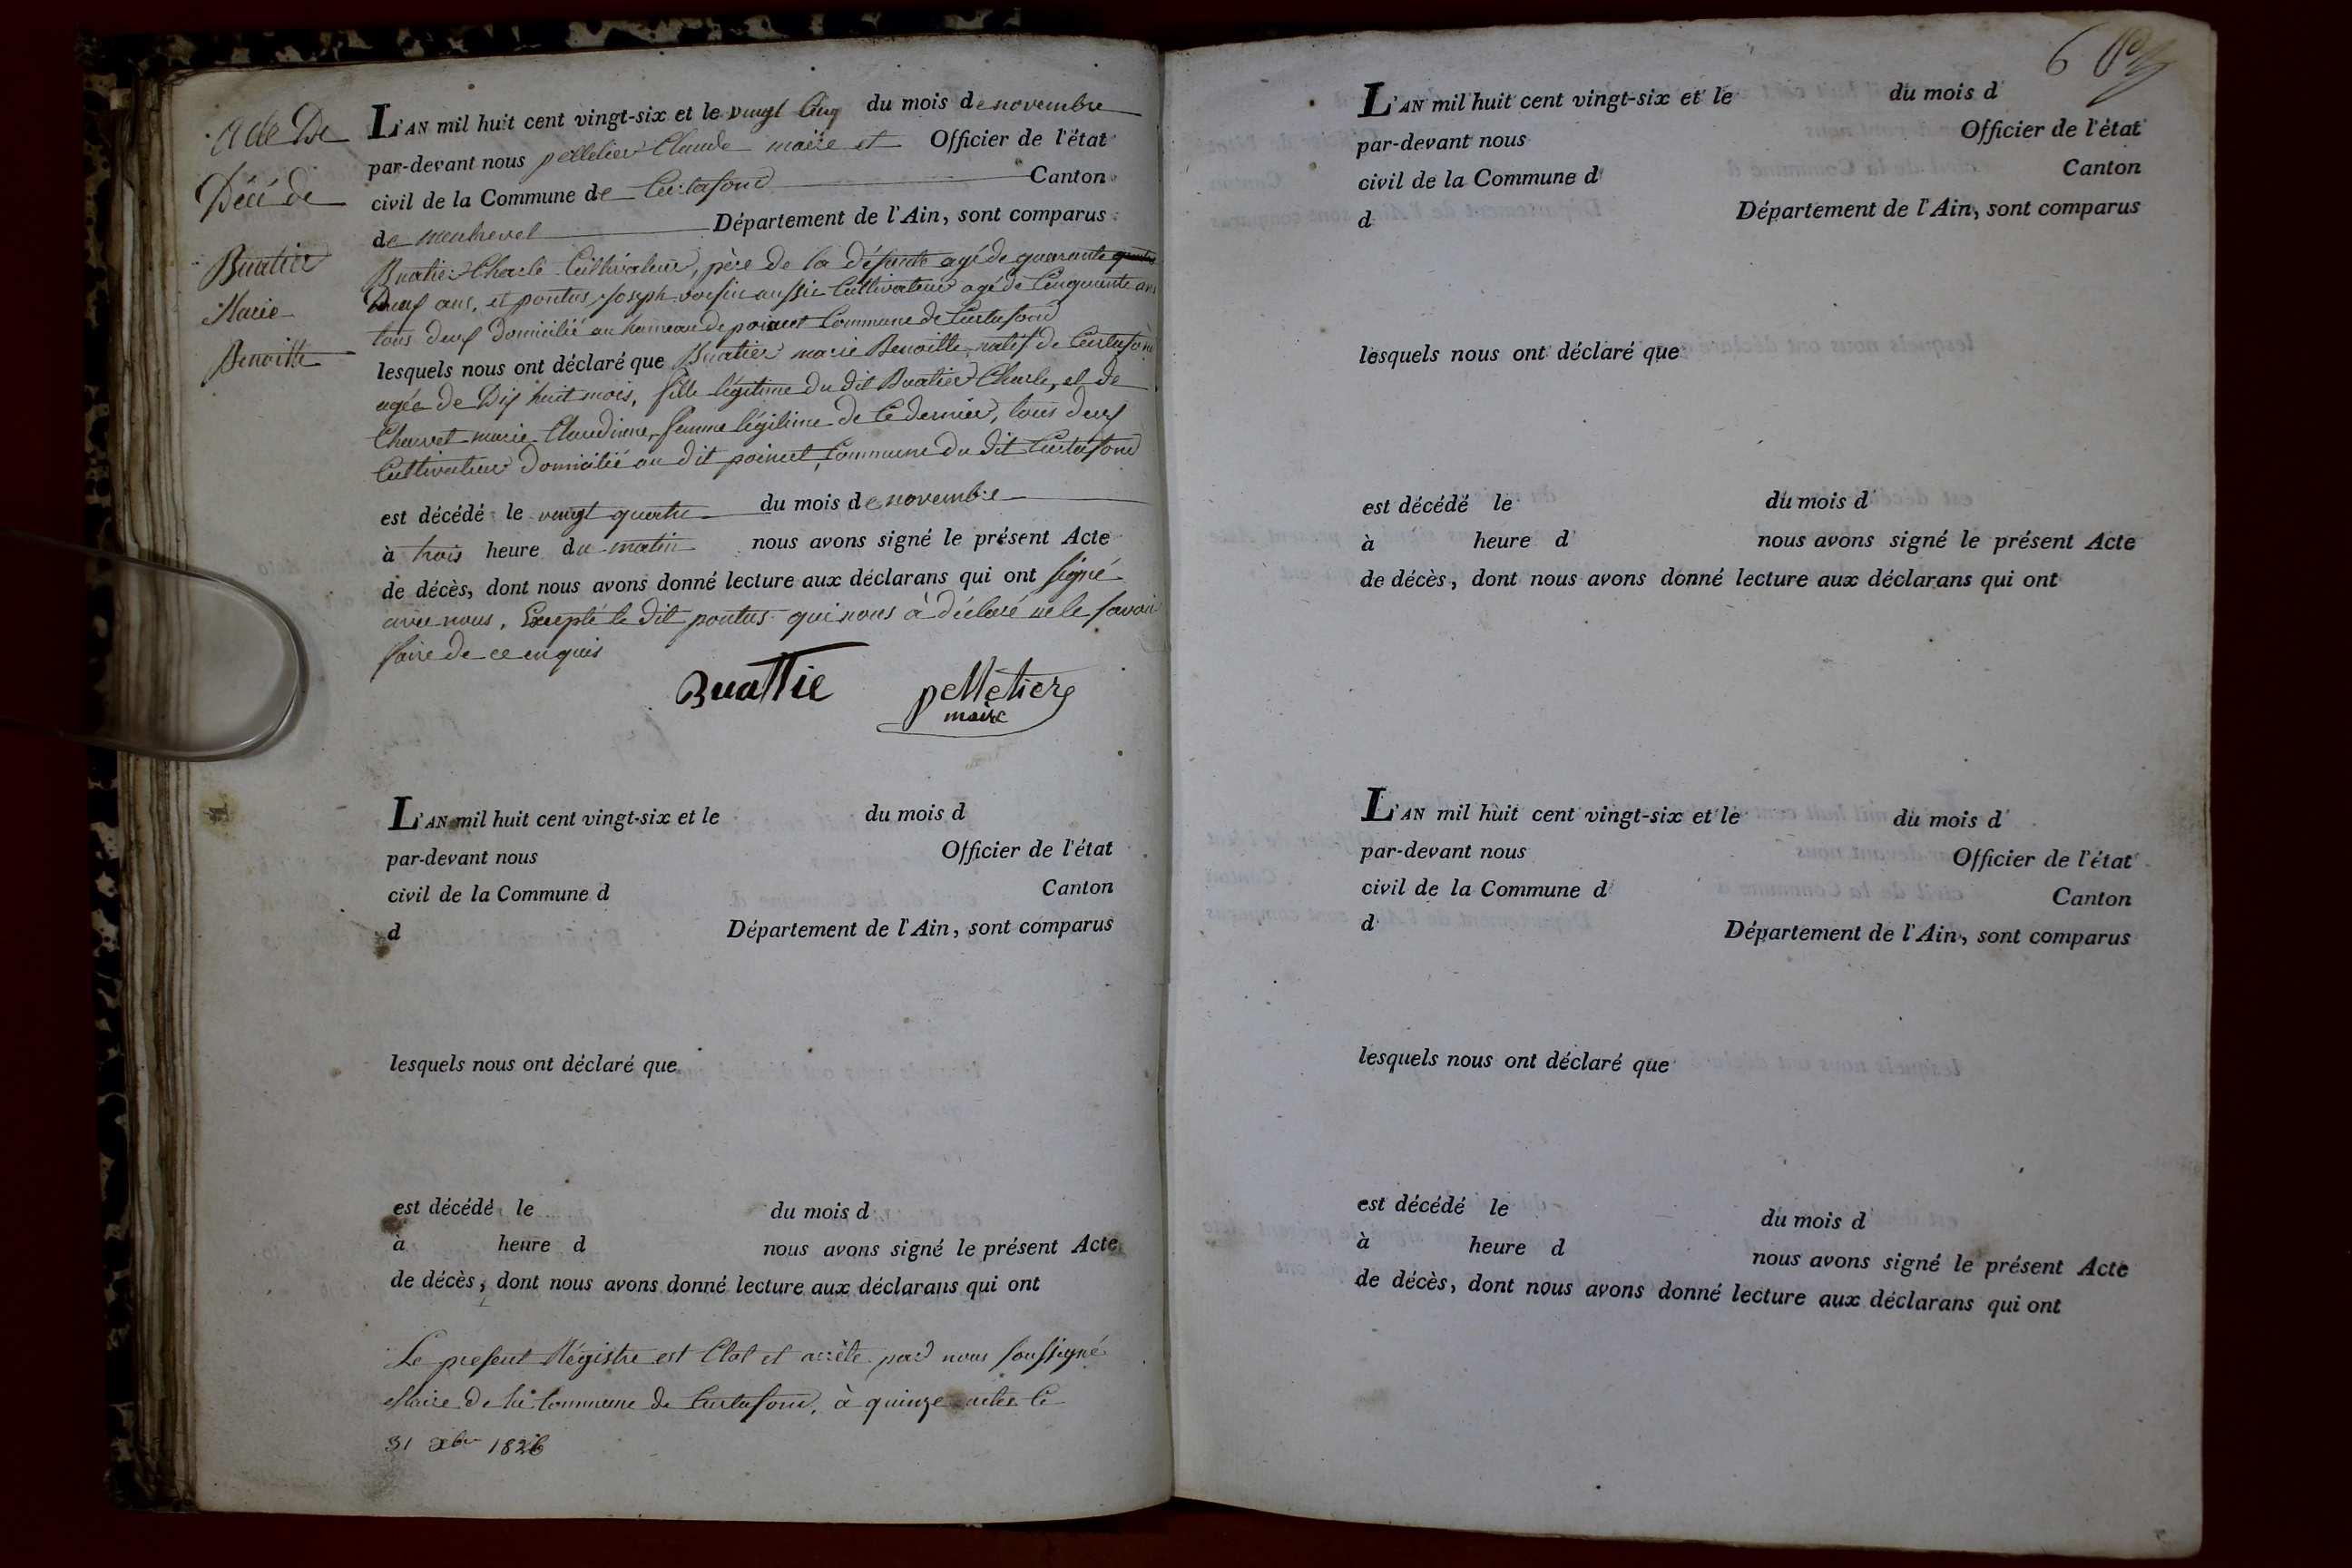 Acte De
Décé de
Buatier
Marie
Benoitte
L'AN mil huit cent vingt-six et le vingt Cinq du mois de novembre
par-devant nous pelletier Claude maire et Officier de l'état
civil de la Commune de Curtafond Canton
de montrevel Département de l'Ain, sont comparus
Buatier Charle Cultivateur, père de la défunte agé de quarante
neuf ans, et pontus joseph voisin aussi Cultivateur agé de Cinquante ans
tous deux Domicilié au hameau de poincet Commune de Curtafond
lesquels nous ont déclaré que Buatier marie Benoitte natif de Curtafond
agée de Dix huit mois, fille légitime du dit Buatier Charle, et de
Chauvet marie Claudine, femme légitime de Ce dernier, tous deux
Cultivateur Domicilié au dit poincet, Commune du dit Curtafond
est décédé le vingt quatre du mois de novembre
à trois heure du matin nous avons signé le présent Acte
de décès, dont nous avons donné lecture aux déclarans qui ont signé
avec nous, Excepté le dit pontus qui nous à déclaré ne le savoir
faire de ce enquis
Buattie pelletier
maire
L'AN mil huit cent vingt-six et le du mois d
par-devant nous Officier de l'état
civil de la Commune d Canton
d Département de l'Ain, sont comparus
lesquels nous ont déclaré que
est décédé le du mois d
à heure d nous avons signé le présent Acte
de décès, dont nous avons donné lecture aux déclarans qui ont
Le present Régistre est Clot et arrête par nous soussigné
Maire de la Commune de Curtafond, à quinze actes le
31 xbre 1826
6
L'AN mil huit cent vingt-six et le du mois d
par-devant nous Officier de l'état
civil de la Commune d Canton
d Département de l'Ain, sont comparus
lesquels nous ont déclaré que
est décédé le du mois d
à heure d nous avons signé le présent Acte
de décès, dont nous avons donné lecture aux déclarans qui ont
L'AN mil huit cent vingt-six et le du mois d
par-devant nous Officier de l'état
civil de la Commune d Canton
d Département de l'Ain, sont comparus
lesquels nous ont déclaré que
est décédé le du mois d
à heure d nous avons signé le présent Acte
de décès, dont nous avons donné lecture aux déclarans qui ont